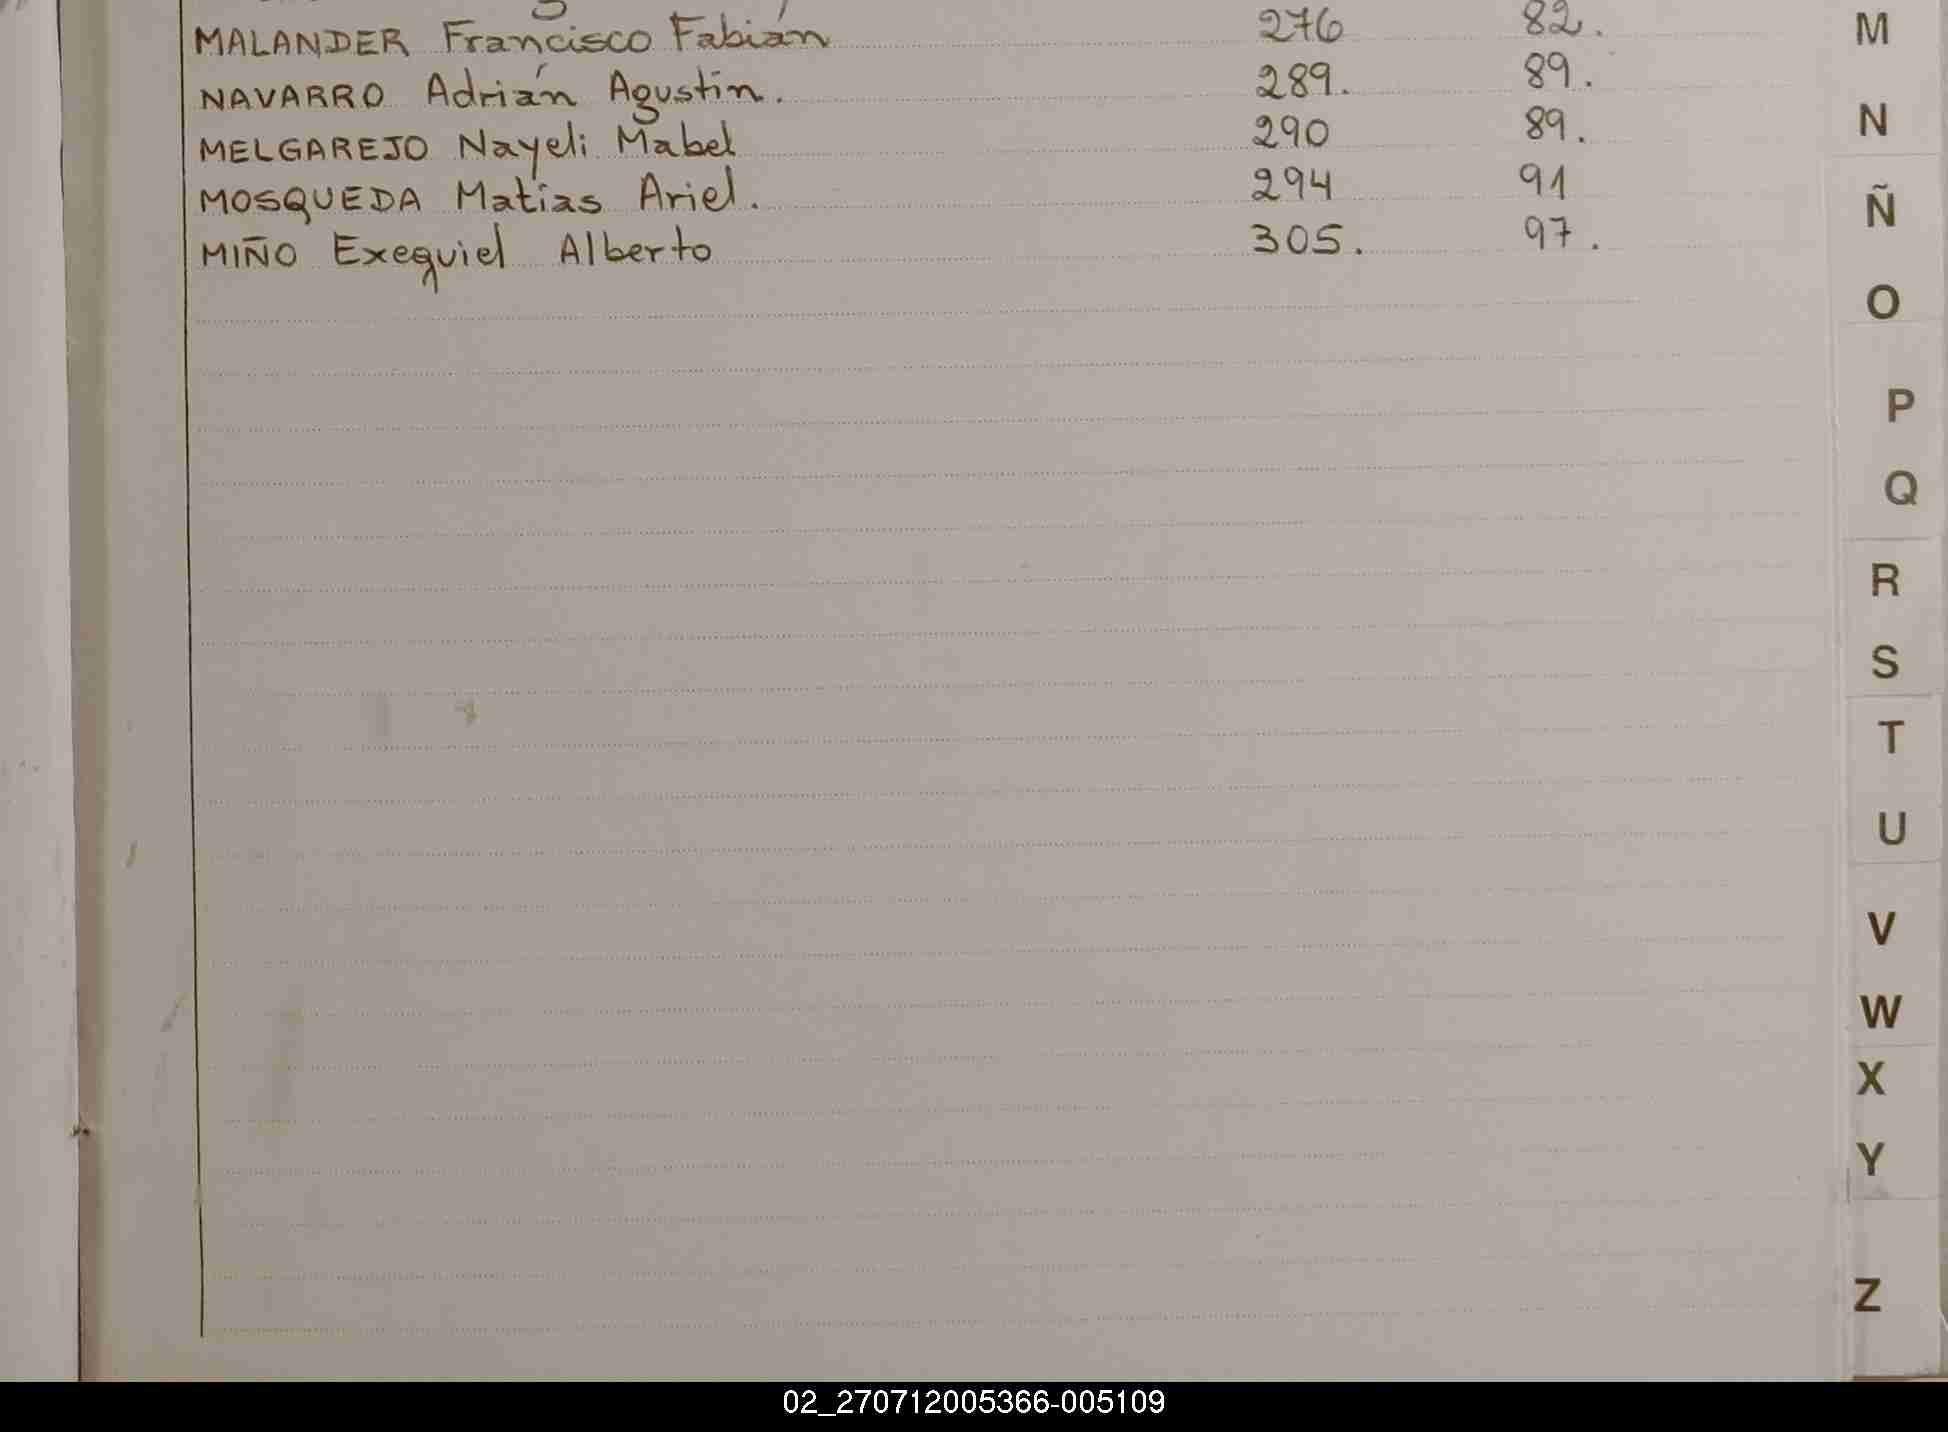 MALANDER Francisco Fabián 276 82.
NAVARRO Adrián Agustin. 289. 89.
MELGAREJO Nayeli Mabel 290 89.
MOSQUEDA Matías Ariel. 294 91
MIÑO Exequiel Alberto 305. 97.
M
N
Ñ
O
P
Q
R
S
T
U
V
W
X
Y
Z
02_270712005366-005109